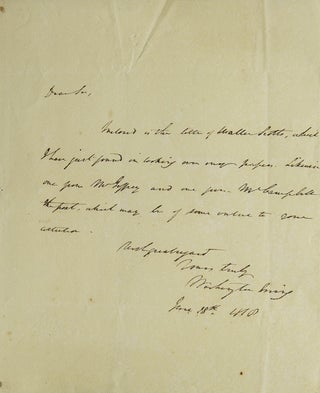 Dear Sir,
Inclosed is the letter of Walter Scotts, which
I have just found in looking over my papers. Likewise
one from Mr Jeffrey and one from Mr Campbell
the poet, which may be of some value to your
collection.
With great regard
Yours truly
Washington Irving
June 18th